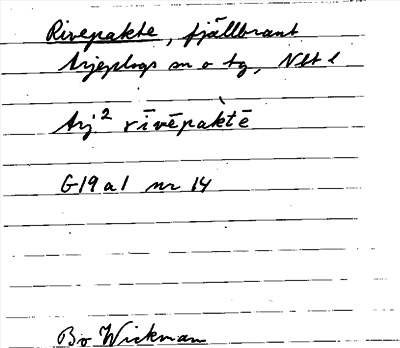 Rivepakte, fjällbrant
Arjeplogs sn o tg, Nbt l
Arj² rīvēpàktē
G19a1 nr 14
Bo Wickman